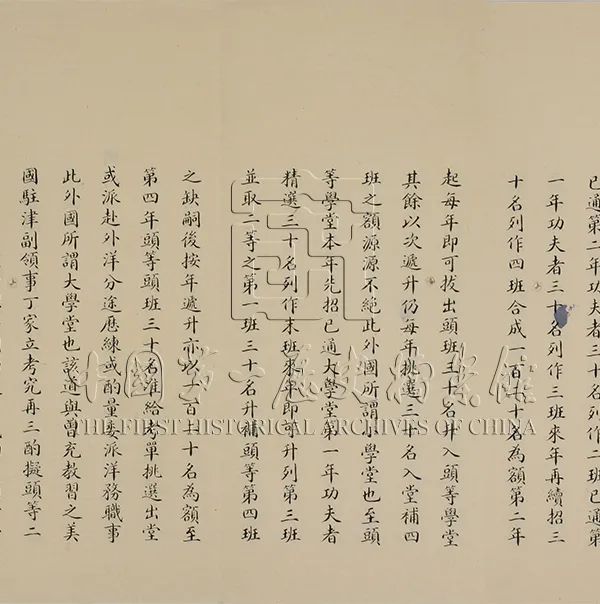 已通第二年功夫者三十名列作二班已通第
一年功夫者三十名列作三班來年再續招三
十名列作四班合成一百二十名為額第二年
起每年即可拔出頭班三十名升入頭等學堂
其餘以次遞升仍每年挑選三十名入堂補四
班之額源源不絕此外國所謂小學堂也至頭
等學堂本年先招已通大學堂第一年功夫者
精選三十名列作末班來年即可升列第三班
並取二等之第一班三十名升補頭等第四班
之缺嗣後按年遞升亦以一百二十名為額至
第四年頭等頭班三十名准給考單挑選出堂
或派赴外洋分途歷練或酌量委派洋務職事
此外國所謂大學堂也該道與曾充教習之美
國駐津副領事丁家立考究再三酌擬頭等二
中國第一歷史檔案館
THE FIRST HISTORICAL ARCHIVES OF CHINA